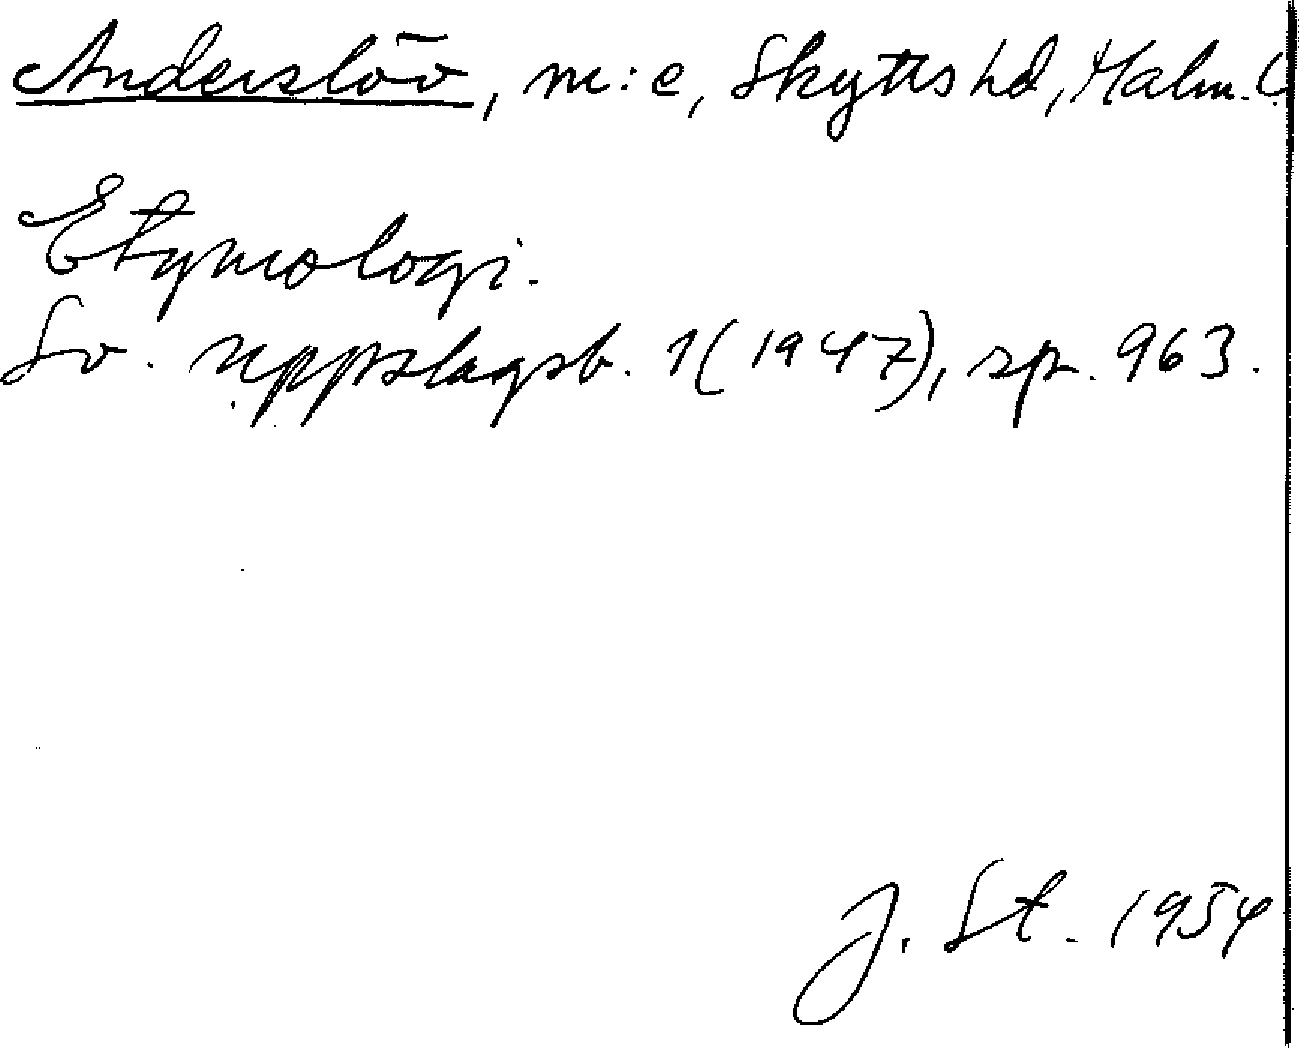 Anderslöv, m:e, Skytts hd, Malm. l
Etymologi.
Sv. uppslagsb. 1 (1947), sp. 963.
J. St. 1954